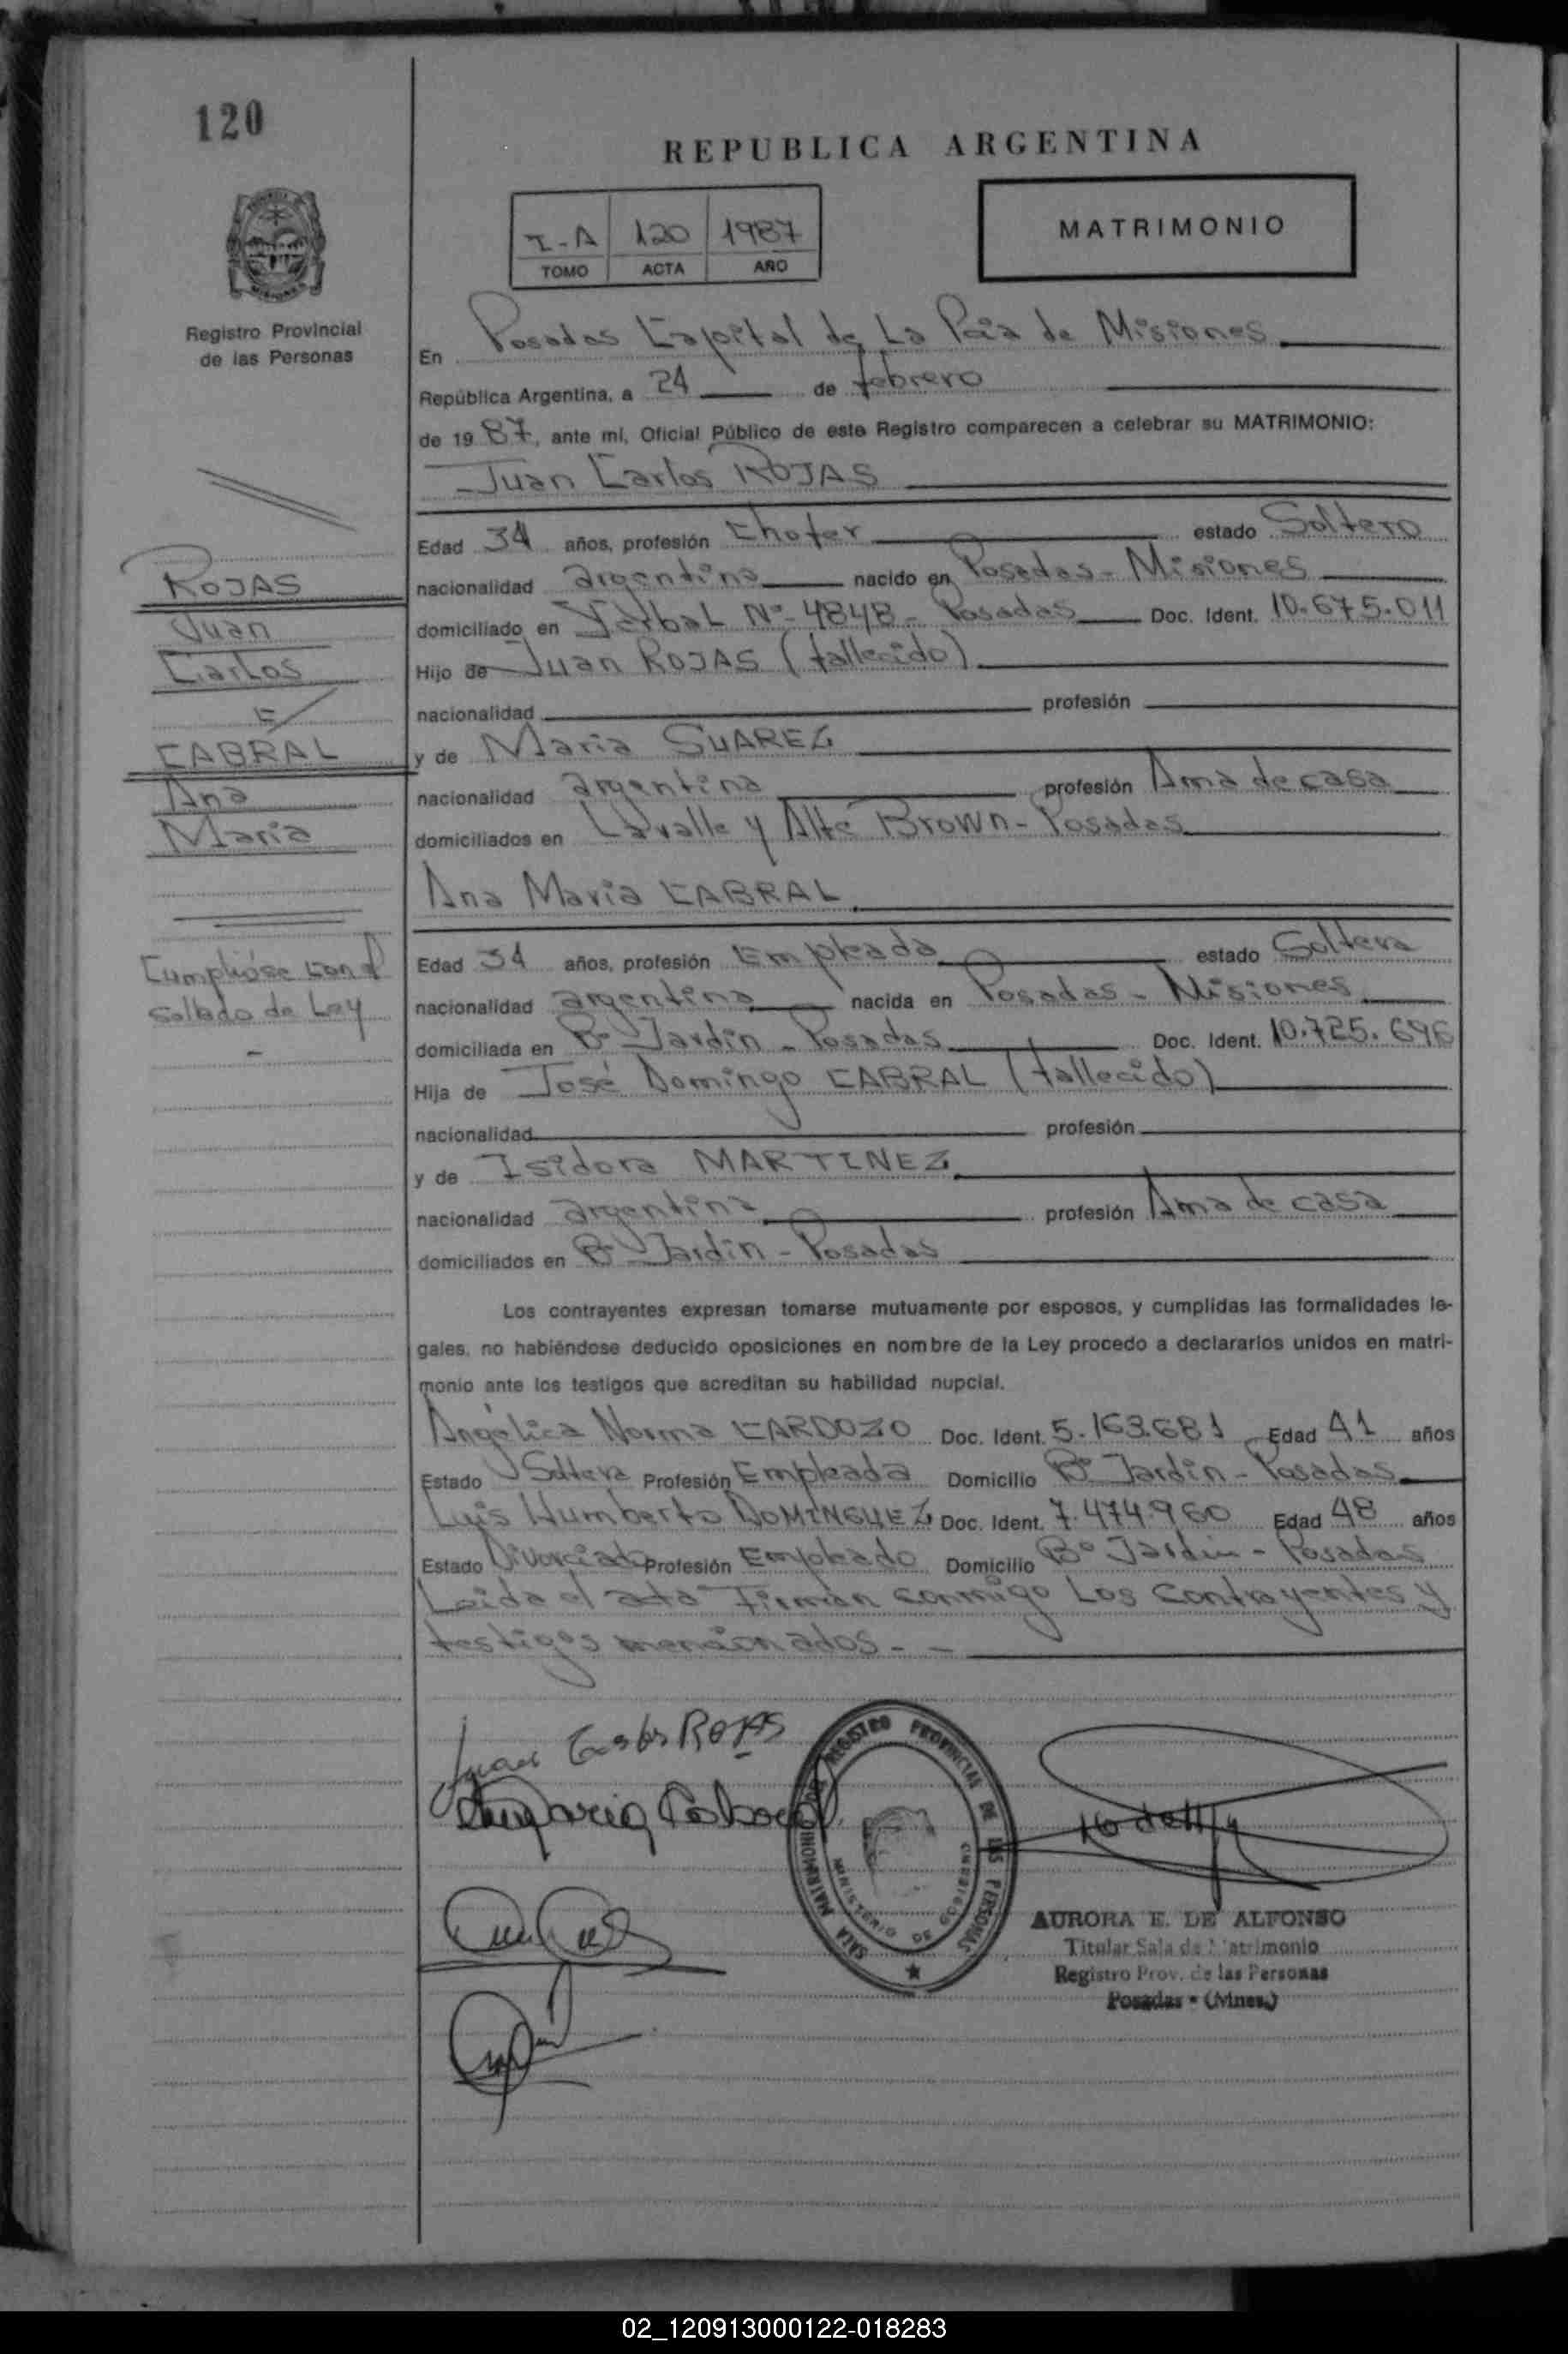 120
REPUBLICA ARGENTINA
I-A 120 1987
TOMO ACTA AÑO
MATRIMONIO
Registro Provincial
de las Personas
En Posadas Capital de La Pcia de Misiones
República Argentina, a 24 de febrero
de 1987, ante mí, Oficial Público de este Registro comparecen a celebrar su MATRIMONIO:
Juan Carlos ROJAS
Edad 34 años, profesión Chofer estado Soltero
nacionalidad argentina nacido en Posadas - Misiones
domiciliado en Yerbal Nº 4848 - Posadas Doc. Ident. 10.675.011
Hijo de Juan ROJAS (fallecido)
nacionalidad profesión
y de Maria SUAREZ
nacionalidad argentina profesión Ama de casa
domiciliados en Lavalle y Alte Brown - Posadas
Ana Maria CABRAL
Edad 34 años, profesión Empleada estado Soltera
nacionalidad argentina nacida en Posadas - Misiones
domiciliada en Bº Jardin - Posadas Doc. Ident. 10.725.696
Hija de José Domingo CABRAL (fallecido)
nacionalidad profesión
y de Isidora MARTINEZ
nacionalidad argentina profesión Ama de casa
domiciliados en Bº Jardin - Posadas
Los contrayentes expresan tomarse mutuamente por esposos, y cumplidas las formalidades le-
gales, no habiéndose deducido oposiciones en nombre de la Ley procedo a declararlos unidos en matri-
monio ante los testigos que acreditan su habilidad nupcial.
Angélica Norma CARDOZO Doc. Ident. 5.163.681 Edad 41 años
Estado Soltera Profesión Empleada Domicilio Bº Jardin - Posadas
Luis Humberto DOMINGUEZ Doc. Ident. 7.474.960 Edad 48 años
Estado Divorciado Profesión Empleado Domicilio Bº Jardin - Posadas
Leida el acta Firman conmigo Los Contrayentes y
testigos mencionados. -
ROJAS
Juan
Carlos
E
CABRAL
Ana
Maria
Cumplióse con el
sellado de Ley
-
Juan Carlos ROJAS
Ana Maria Cabral
SALA MATRIMONIO REGISTRO PROVINCIAL DE LAS PERSONAS
MINISTERIO DE GOBIERNO
AURORA E. DE ALFONSO
Titular Sala de Matrimonio
Registro Prov. de las Personas
Posadas - (Mnes.)
02_120913000122-018283